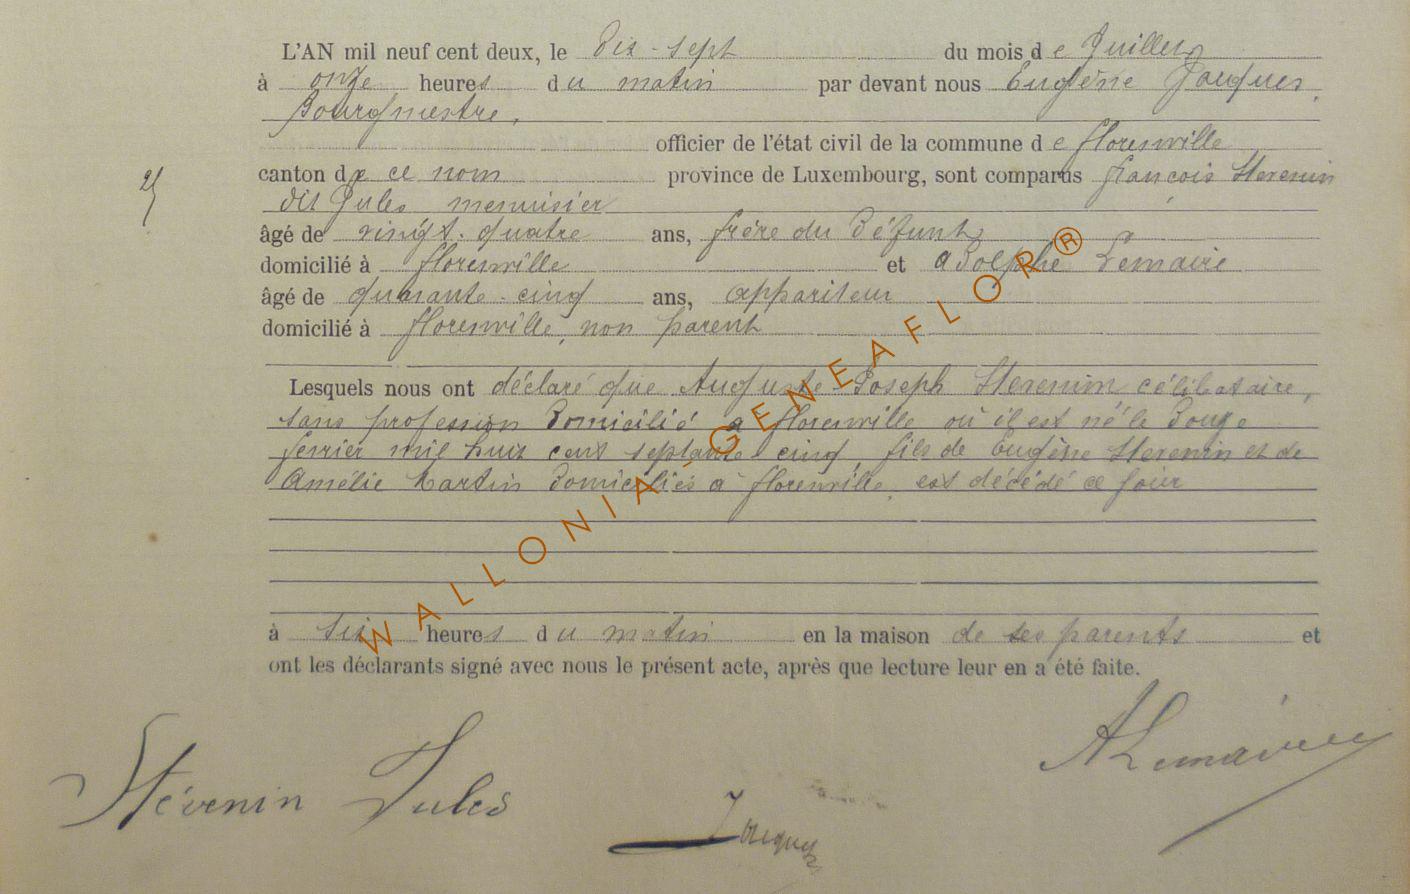 L'AN mil neuf cent deux, le Dix-sept du mois de Juillet
à onze heures du matin par devant nous Eugène Jacques,
Bourgmestre,
officier de l'état civil de la commune de Florenville
canton de ce nom province de Luxembourg, sont comparus François Stevenin
25
dit Jules menuisier
âgé de vingt-quatre ans, frère du Défunt
domicilié à Florenville et Adolphe Lemaire
âgé de quarante-cinq ans, appariteur
domicilié à Florenville, non parent
Lesquels nous ont déclaré que Auguste Joseph Stevenin célibataire,
sans profession Domicilié à Florenville où il est né le Douze
février mil huit cent septante cinq, fils de Eugène Stevenin et de
Amélie Martin Domiciliés à Florenville, est décédé ce jour
à six heures du matin en la maison de ses parents et
ont les déclarants signé avec nous le présent acte, après que lecture leur en a été faite.
Stévenin Jules
Jacques
A Lemaire
WALLONIA-GENEAFLOR®